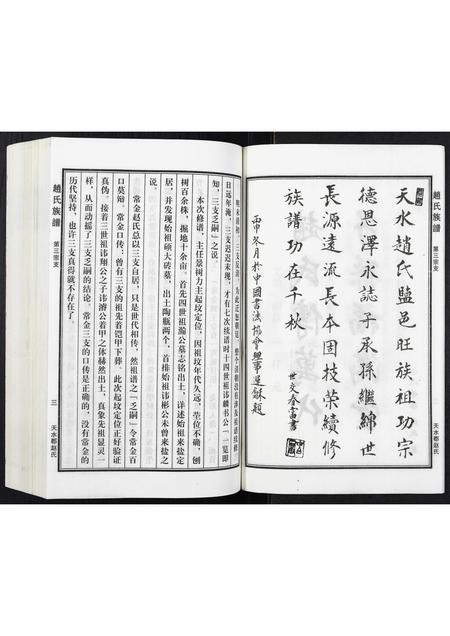 趙氏族譜
第三宗支
天水趙氏鹽邑旺族祖功宗
德恩澤永誌子承孫繼綿世
長源遠流長本固枝榮續修
族譜功在千秋
天水郡赵氏
日远年淹，三支迟迟未现，才有七次续谱时十四世祖讳麟书公《一览即
知，三支乏嗣》之说。
本次修谱，主任景树力主起坟定位，因祖坟年代久远，茔位不确，刨
树百余株，掘地十余亩。首先四世祖瀛公墓志铭出土，详述始祖来盐定
居，并发现始祖硕大砖墓，出土陶瓶两个，首排始祖讳彬公未曾来盐之
说。
常金赵氏总以三支自居，只是世代相传，然祖谱之「乏嗣」令常金百
口莫辩。常金口传：曾有三支的祖先着铠甲下葬。此次起坟定位正好验证
真伪。接着三世祖讳翔公之子讳濬公着甲之体赫然出土，真象先祖显灵一
样，从而动摇了三支乏嗣的结论。常金三支的口传是正确的，没有常金的
历代坚持，也许三支真得就不存在了。
趙氏族譜
第三宗支
三
天水郡赵氏